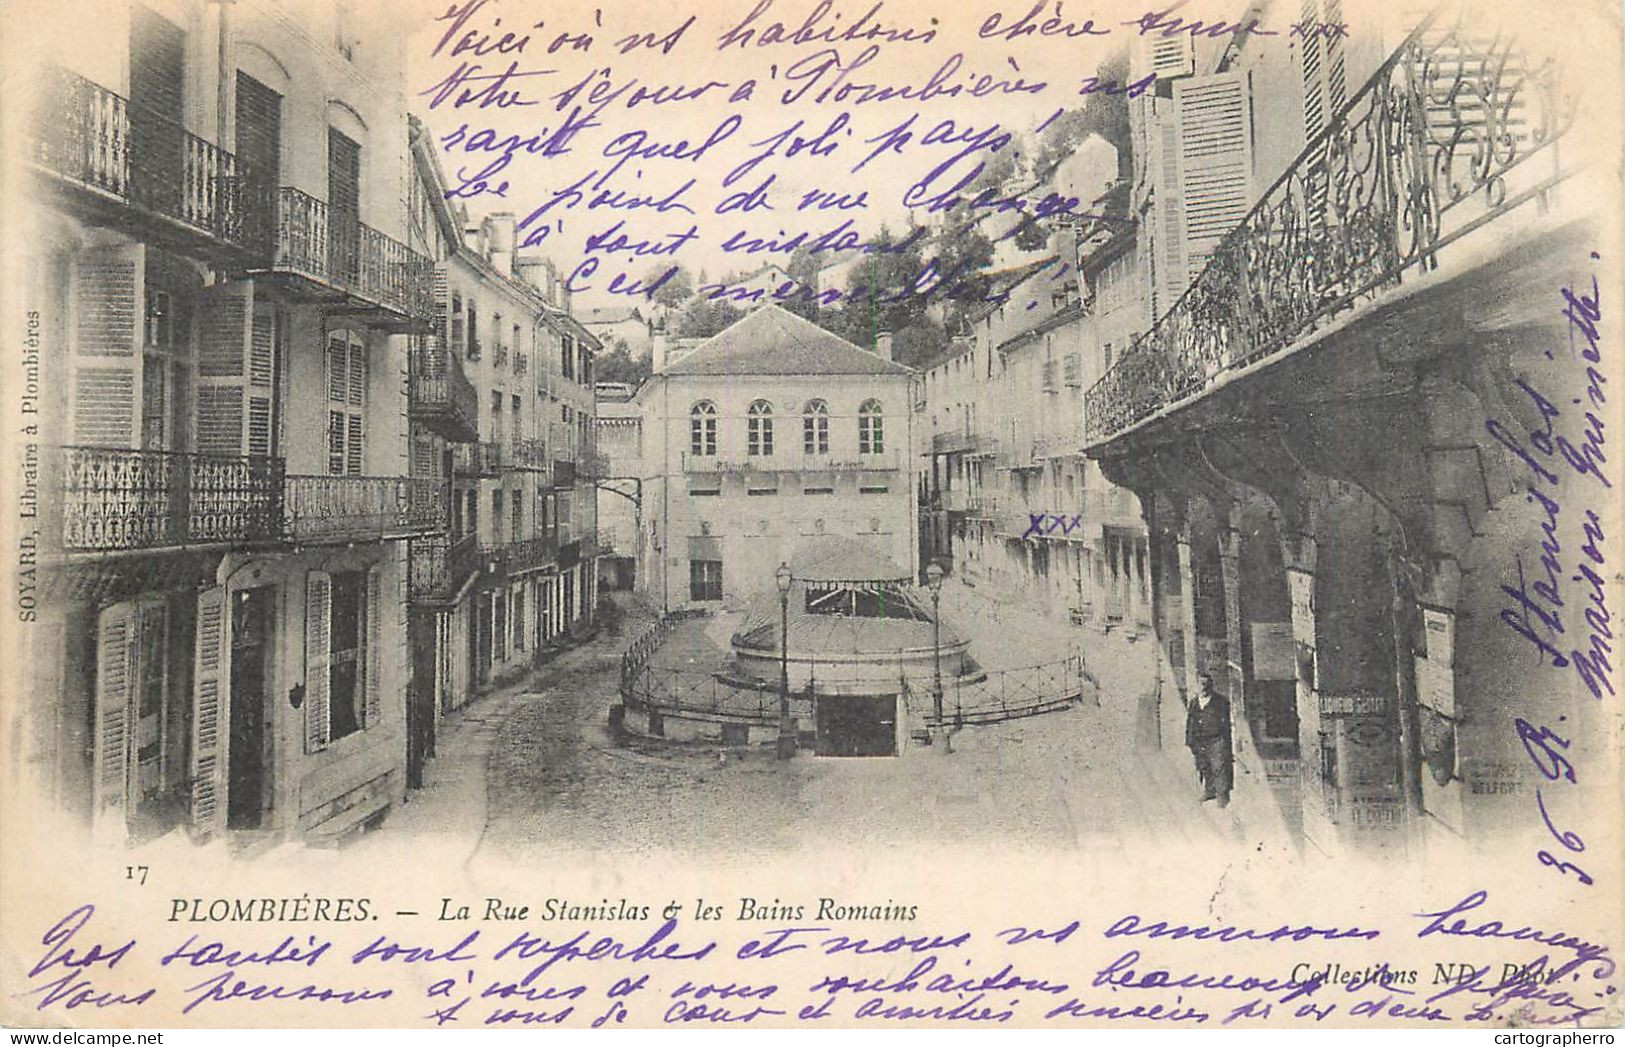 Voici où ns habitons chère xxx
Notre séjour à Plombières ns
ravit quel joli pays!
Le point de vue change
à tout instant
C'est merveilleux!
SOYARD, Libraire à Plombières
xxx
36 R. Stanislas
Maison Guinette.
LIQUEUR
BELFORT
17
PLOMBIÉRES. — La Rue Stanislas & les Bains Romains
Collections ND Phot.
Nos santés sont superbes et nous ns amusons beaucoup.
Vous pensons à vous et vous souhaitons beaucoup de
à vous de cœur et amitiés sincères pr vs deux